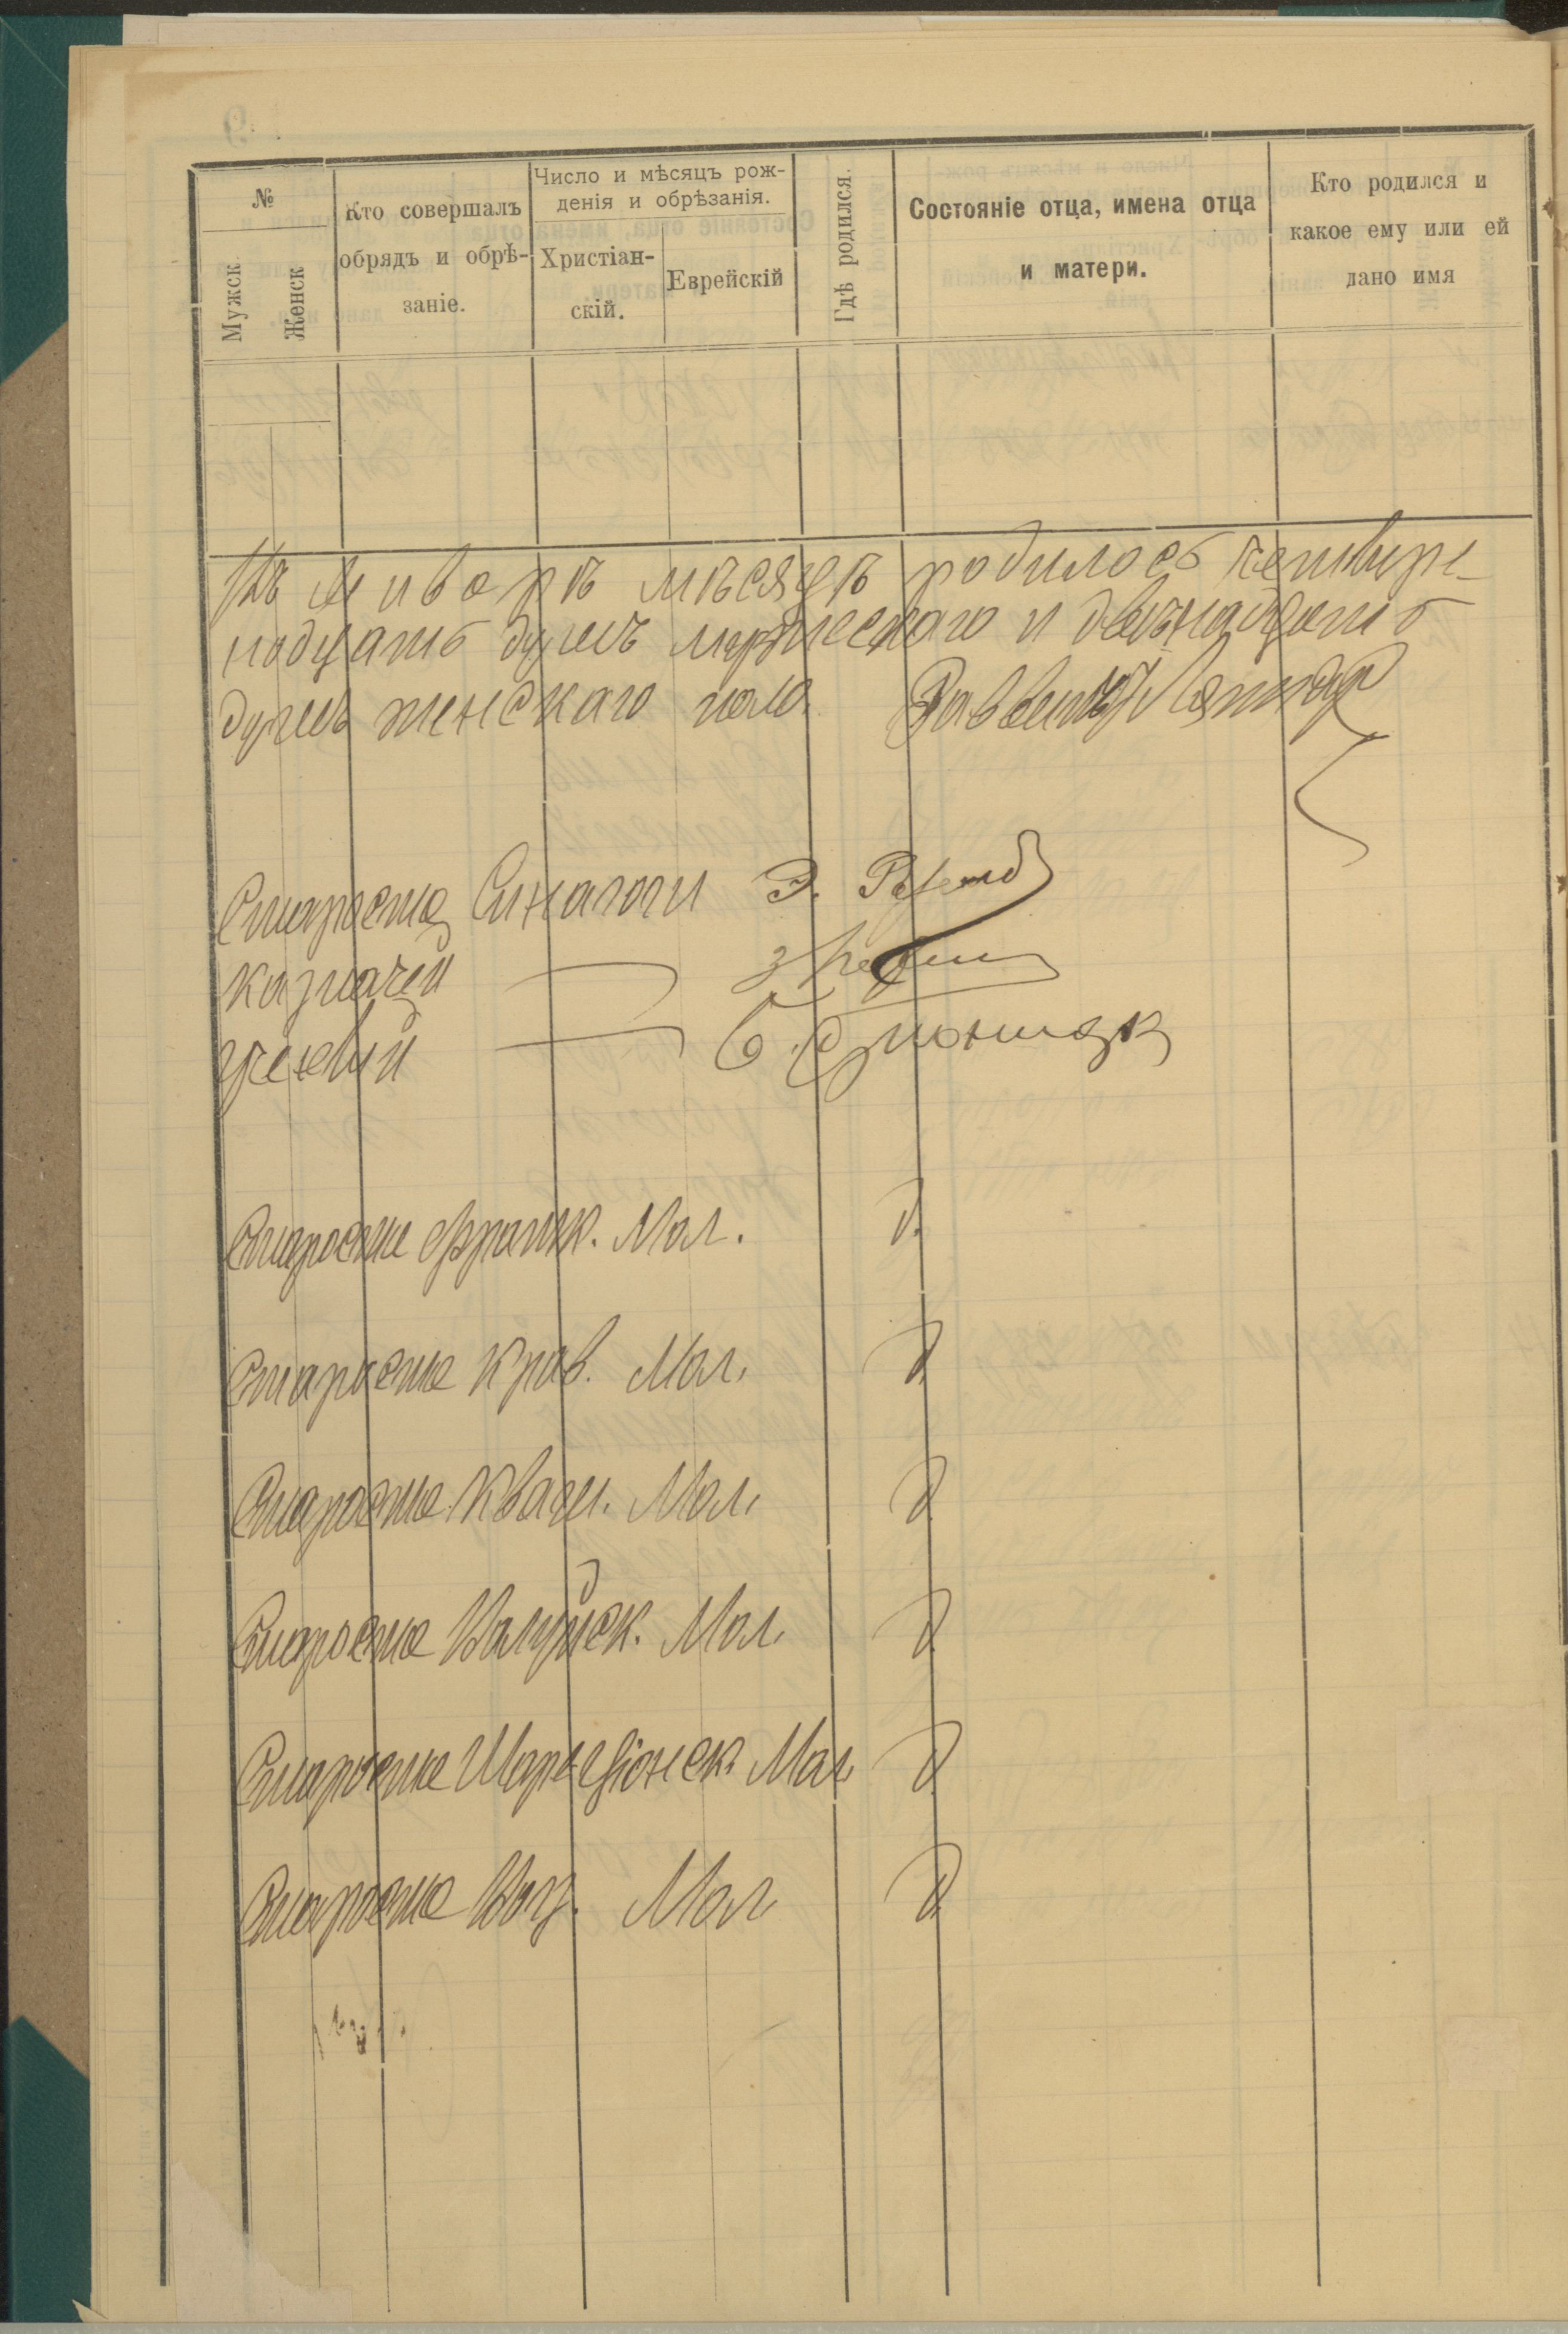 №
Мужск
Женск
Кто совершалъ
обрядъ и обрѣ-
заніе.
Число и мѣсяцъ рож-
денія и обрѣзанія.
Христіан-
скій.
Еврейскій
Гдѣ родился.
Состояніе отца, имена отца
и матери.
Кто родился и
какое ему или ей
дано имя
Въ январѣ мѣсяцѣ родилось четыре-
надцать душъ мужескаго и двѣнадцать
душъ женскаго пола. Раввинъ
Староста Синагоги Э.
Казначей
Ученый
Староста Франк. Мол.
Староста Крав. Мол.
Староста Квасн. Мол.
Староста Валуйск. Мол.
Староста Мол.
Староста Мол.